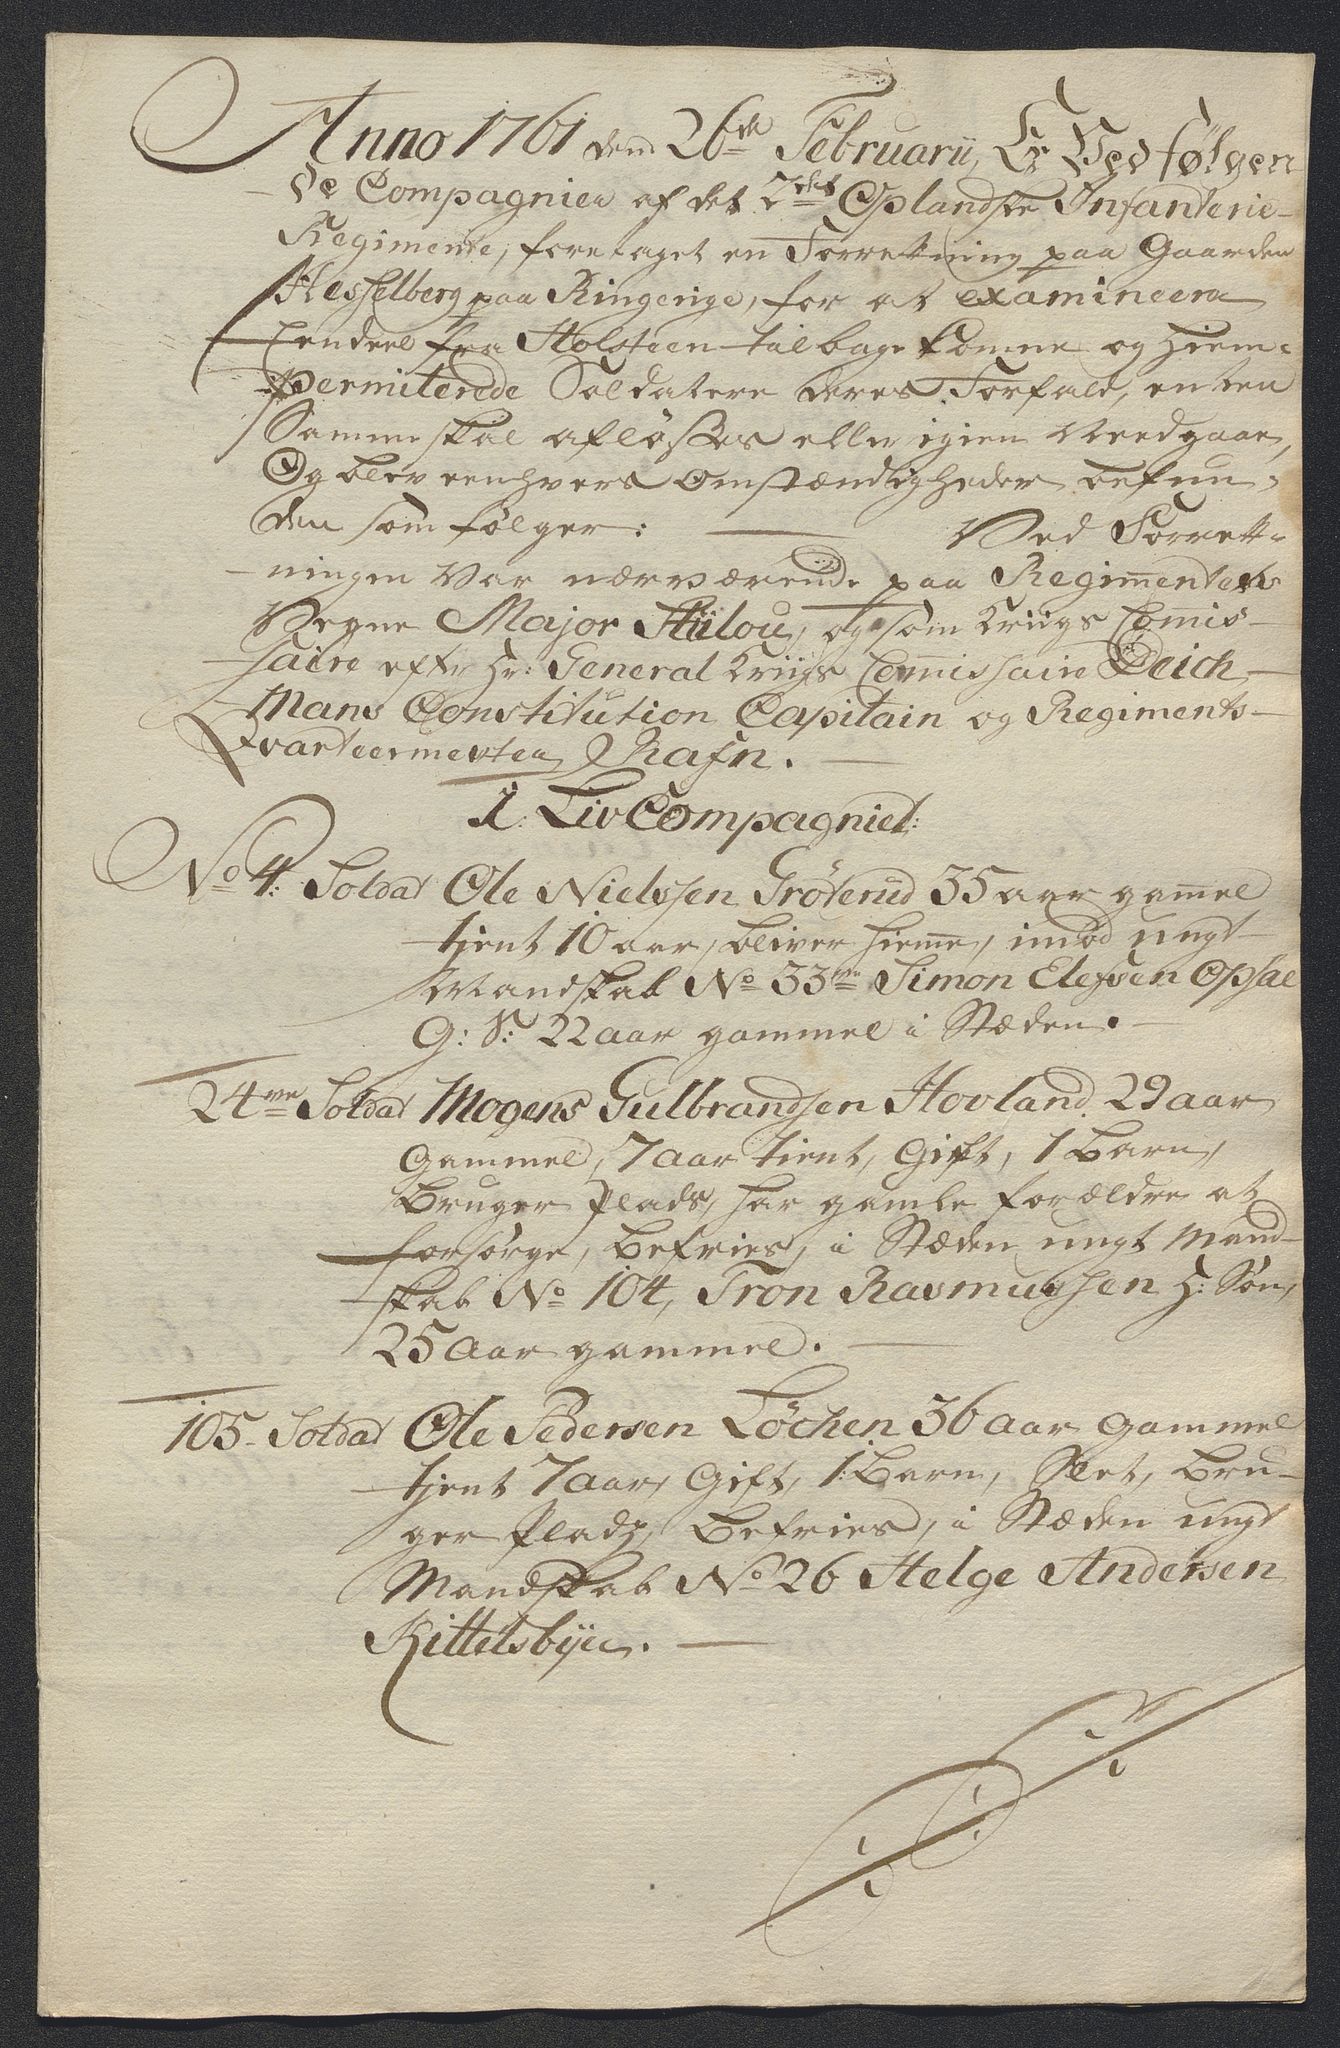 Anno 1761 dend 26de Februarii, Er Ved følgen
de Compagnier af det 2det Oplandske Infanterie
Regimente, foretaget en Forretning paa Gaarden
Hesselberg paa Ringerige, for at examineere
Eendeel fra Holsteen tilbage komne og hiem-
permiterede Soldatere deres Forfald, enten
Samme skal afløsses eller igien Needgaae,
Og blev eenhvers Omstændigheder befun-
den som følger: Ved Forrett-
ningen var nærværende paa Regimentets
Vegne Major Hülou, og som Kriigs Comis-
saire efter Hr: General Kriigs Commissaire Deich
Mans Constitution Capitain og Regiments
Qvarteermester Rafn.
1. Liv Compagniet:
No 4: Soldat Ole Nielssen Grøterud 35 aar gamel
tjent 10 aar, bliver hieme, imod ungt
Mandskab No 33 Simon Elefsen Opsal
G: S: 22 aar gammel i Stæden.
24 Soldat Mogens Gulbrandsen Hovland 29 aar
Gammel, 7 aar tient, Gift, 1 Barn,
Bruger Plads, har gamle forældre at
forsørge, befries, i Stæden ungt Mand-
skab No 104, Tron Rasmussen H: Søn,
25 Aar gammel.
105 Soldat Ole Pedersen Løchen 36 aar Gammel
tjent 7 aar, Gift, 1: Barn, Slet, bru-
ger Pladz, befries, i Stæden ungt
Mandskab No 26 Helge Andersen
Kittelsbye.